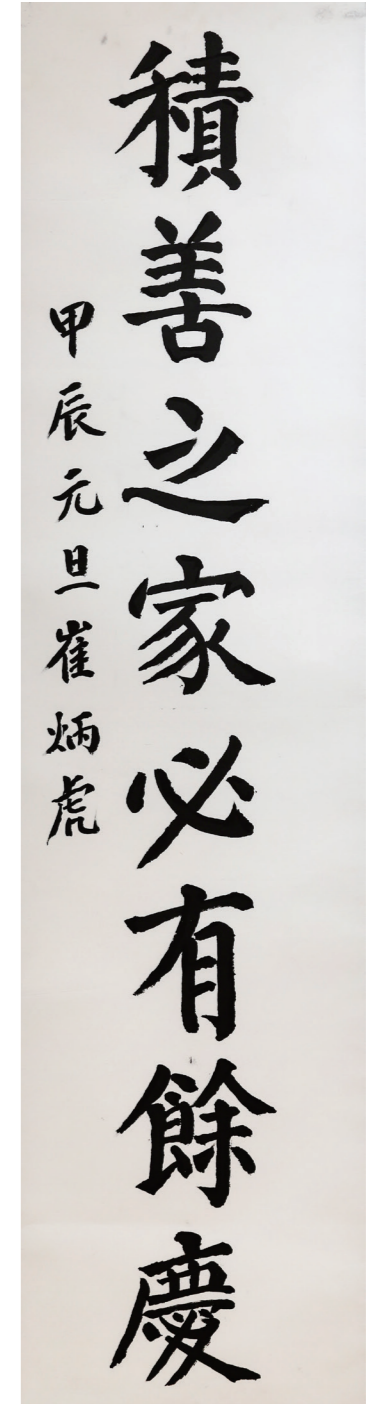 積善之家必有餘慶
甲辰元旦崔炳虎